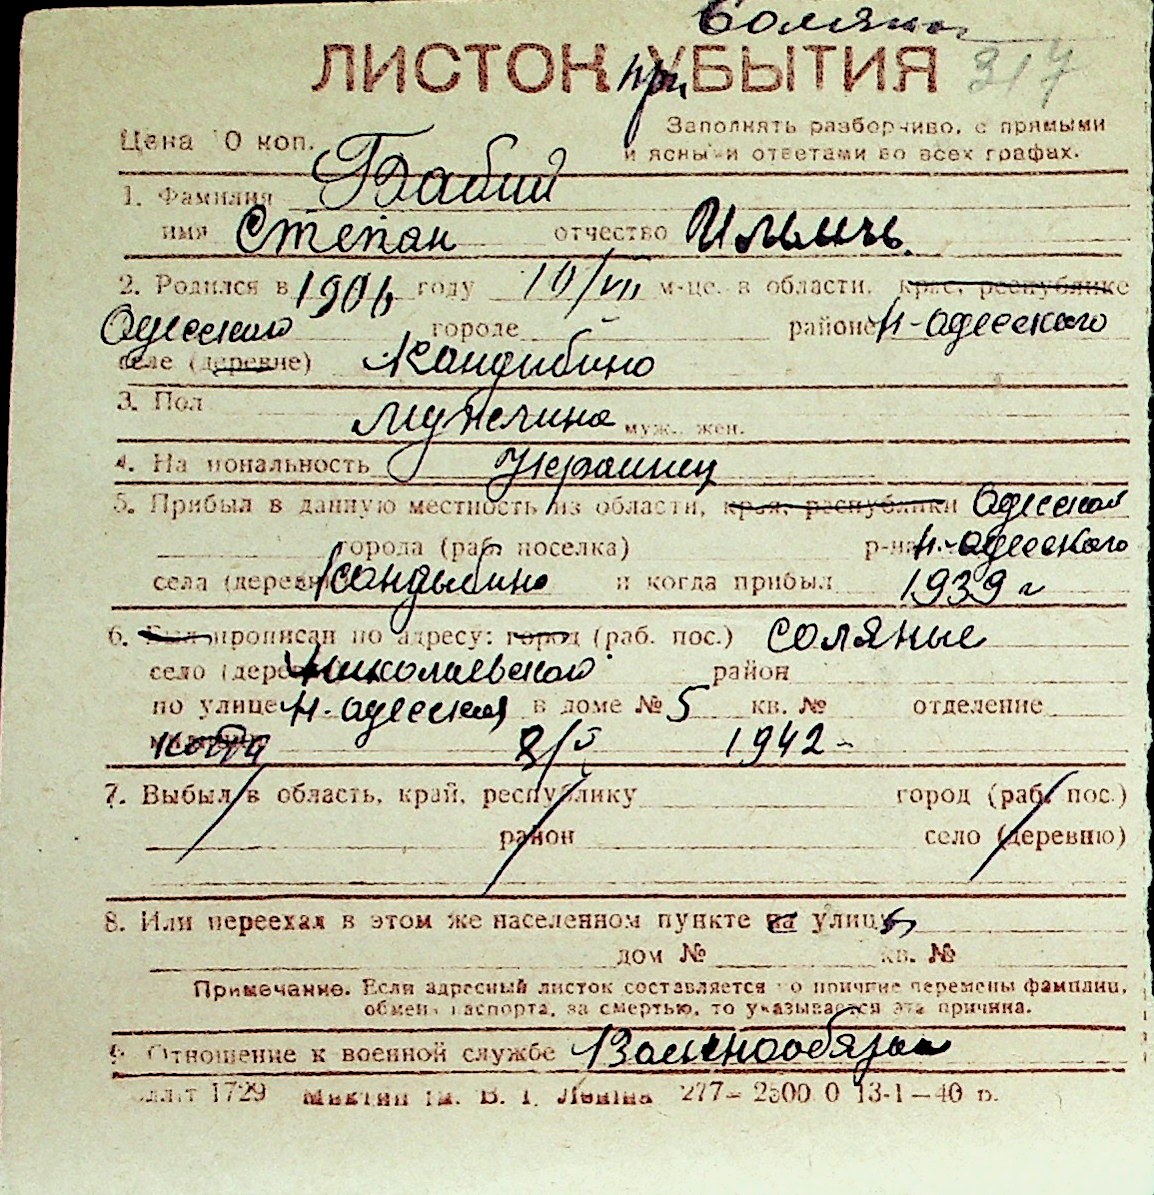 Соляные
ЛИСТОК при УБЫТИЯ 317
Цена 10 коп. Заполнять разборчиво, с прямыми
и ясными ответами во всех графах.
1. Фамилия Бабий
имя Степан отчество Ильичь
2. Родился в 1906 году 10/VII м-це. в области, крае, республике
Одесского городе районе Н-Одесского
селе (деревне) Кандыбино
3. Пол Мужчина муж. жен.
4. Национальность Украинец
5. Прибыл в данную местность из области, края, республики Одесской
города (раб. поселка) р-на Н-Одесского
села (деревни) Кандыбино и когда прибыл 1939 г
6. Был прописан по адресу: город (раб. пос.) Соляные
село (деревня) Николаевской район
по улице Н-Одесская в доме № 5 кв. № отделение
8/V 1942
7. Выбыл в область, край, республику город (раб. пос.)
район село (деревню)
8. Или переехал в этом же населенном пункте на улицу
дом № кв. №
Примечание. Если адресный листок составляется по причине перемены фамилии,
обмена паспорта, за смертью, то указывается эта причина.
9. Отношение к военной службе Военнообязан
1729 ім. В. І. Леніна 277–2500.0 13-1–40 р.